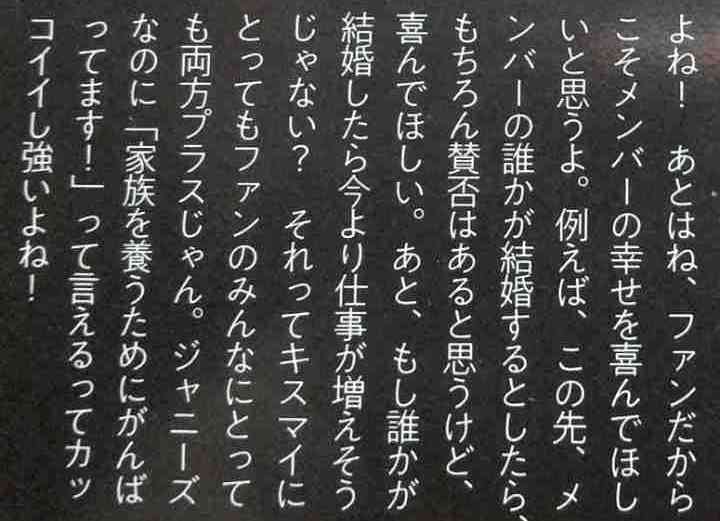 よね！　あとはね、ファンだから
こそメンバーの幸せを喜んでほし
いと思うよ。例えば、この先、メ
ンバーの誰かが結婚するとしたら、
もちろん賛否はあると思うけど、
喜んでほしい。あと、もし誰かが
結婚したら今より仕事が増えそう
じゃない？　それってキスマイに
とってもファンのみんなにとって
も両方プラスじゃん。ジャニーズ
なのに「家族を養うためにがんば
ってます！」って言えるってカッ
コイイし強いよね！